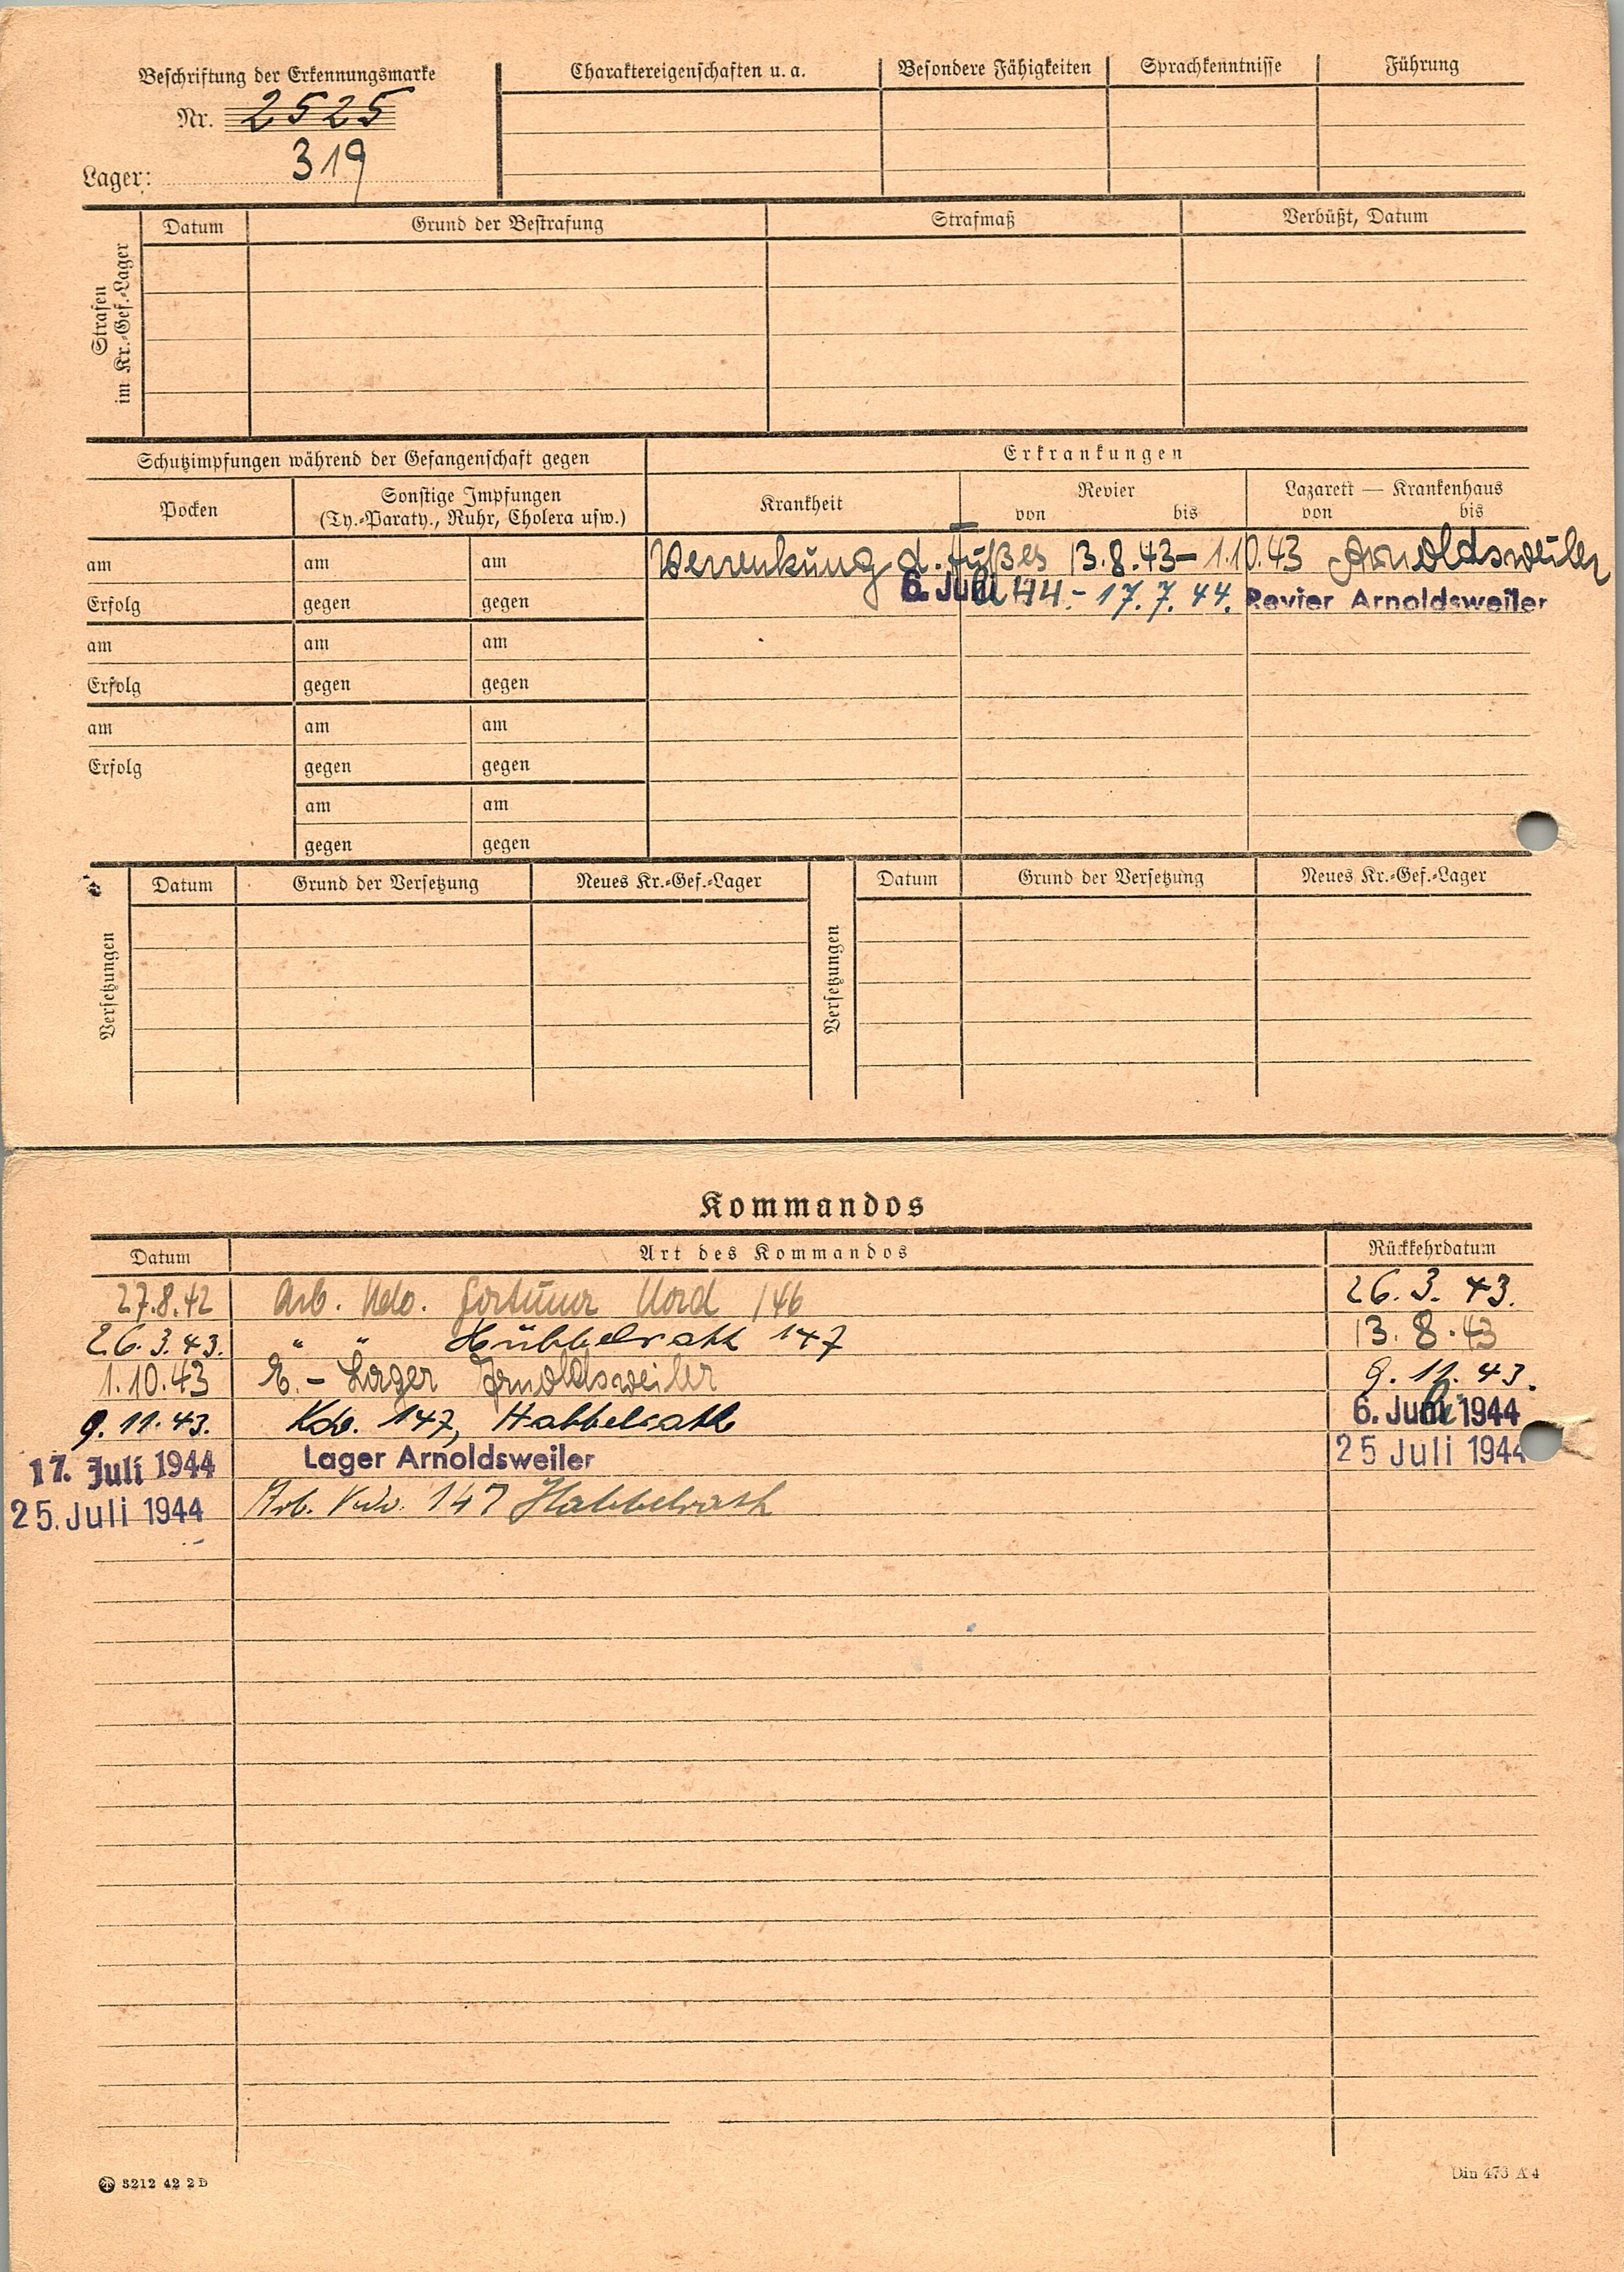 Beschriftung der Erkennungsmarke
Nr. 2525
Lager: 319
Charaktereigenschaften u. a.
Besondere Fähigkeiten
Sprachkenntnisse
Führung
Strafen im Kr.-Gef.-Lager
Datum
Grund der Bestrafung
Strafmaß
Verbüßt, Datum
Schutzimpfungen während der Gefangenschaft gegen
Erkrankungen
Pocken
Sonstige Impfungen
(Ty.-Paraty., Ruhr, Cholera usw.)
Krankheit
Revier
von bis
Lazarett — Krankenhaus
von bis
am am am Verrenkung d. Fußes 13.8.43 – 1.10.43 Arnoldsweiler
Erfolg gegen gegen 6. Juli 44. – 17.7.44. Revier Arnoldsweiler
am am am
Erfolg gegen gegen
am am am
Erfolg gegen gegen
am am
gegen gegen
Versetzungen
Datum Grund der Versetzung Neues Kr.-Gef.-Lager
Versetzungen
Datum Grund der Versetzung Neues Kr.-Gef.-Lager
Kommandos
Datum Art des Kommandos Rückkehrdatum
27.8.42 Arb. Kdo. Fortuna Nord 146 26.3.43.
26.3.43. " " Hübbelrath 147 13.8.43
1.10.43 E.-Lager Arnoldsweiler 9.11.43.
9.11.43. Kdo. 147, Habbelrath 6. Juli 1944
17. Juli 1944 Lager Arnoldsweiler 25 Juli 1944
25. Juli 1944 Arb. Kdo. 147 Habbelrath
3212 42 2 D
Din 476 A 4